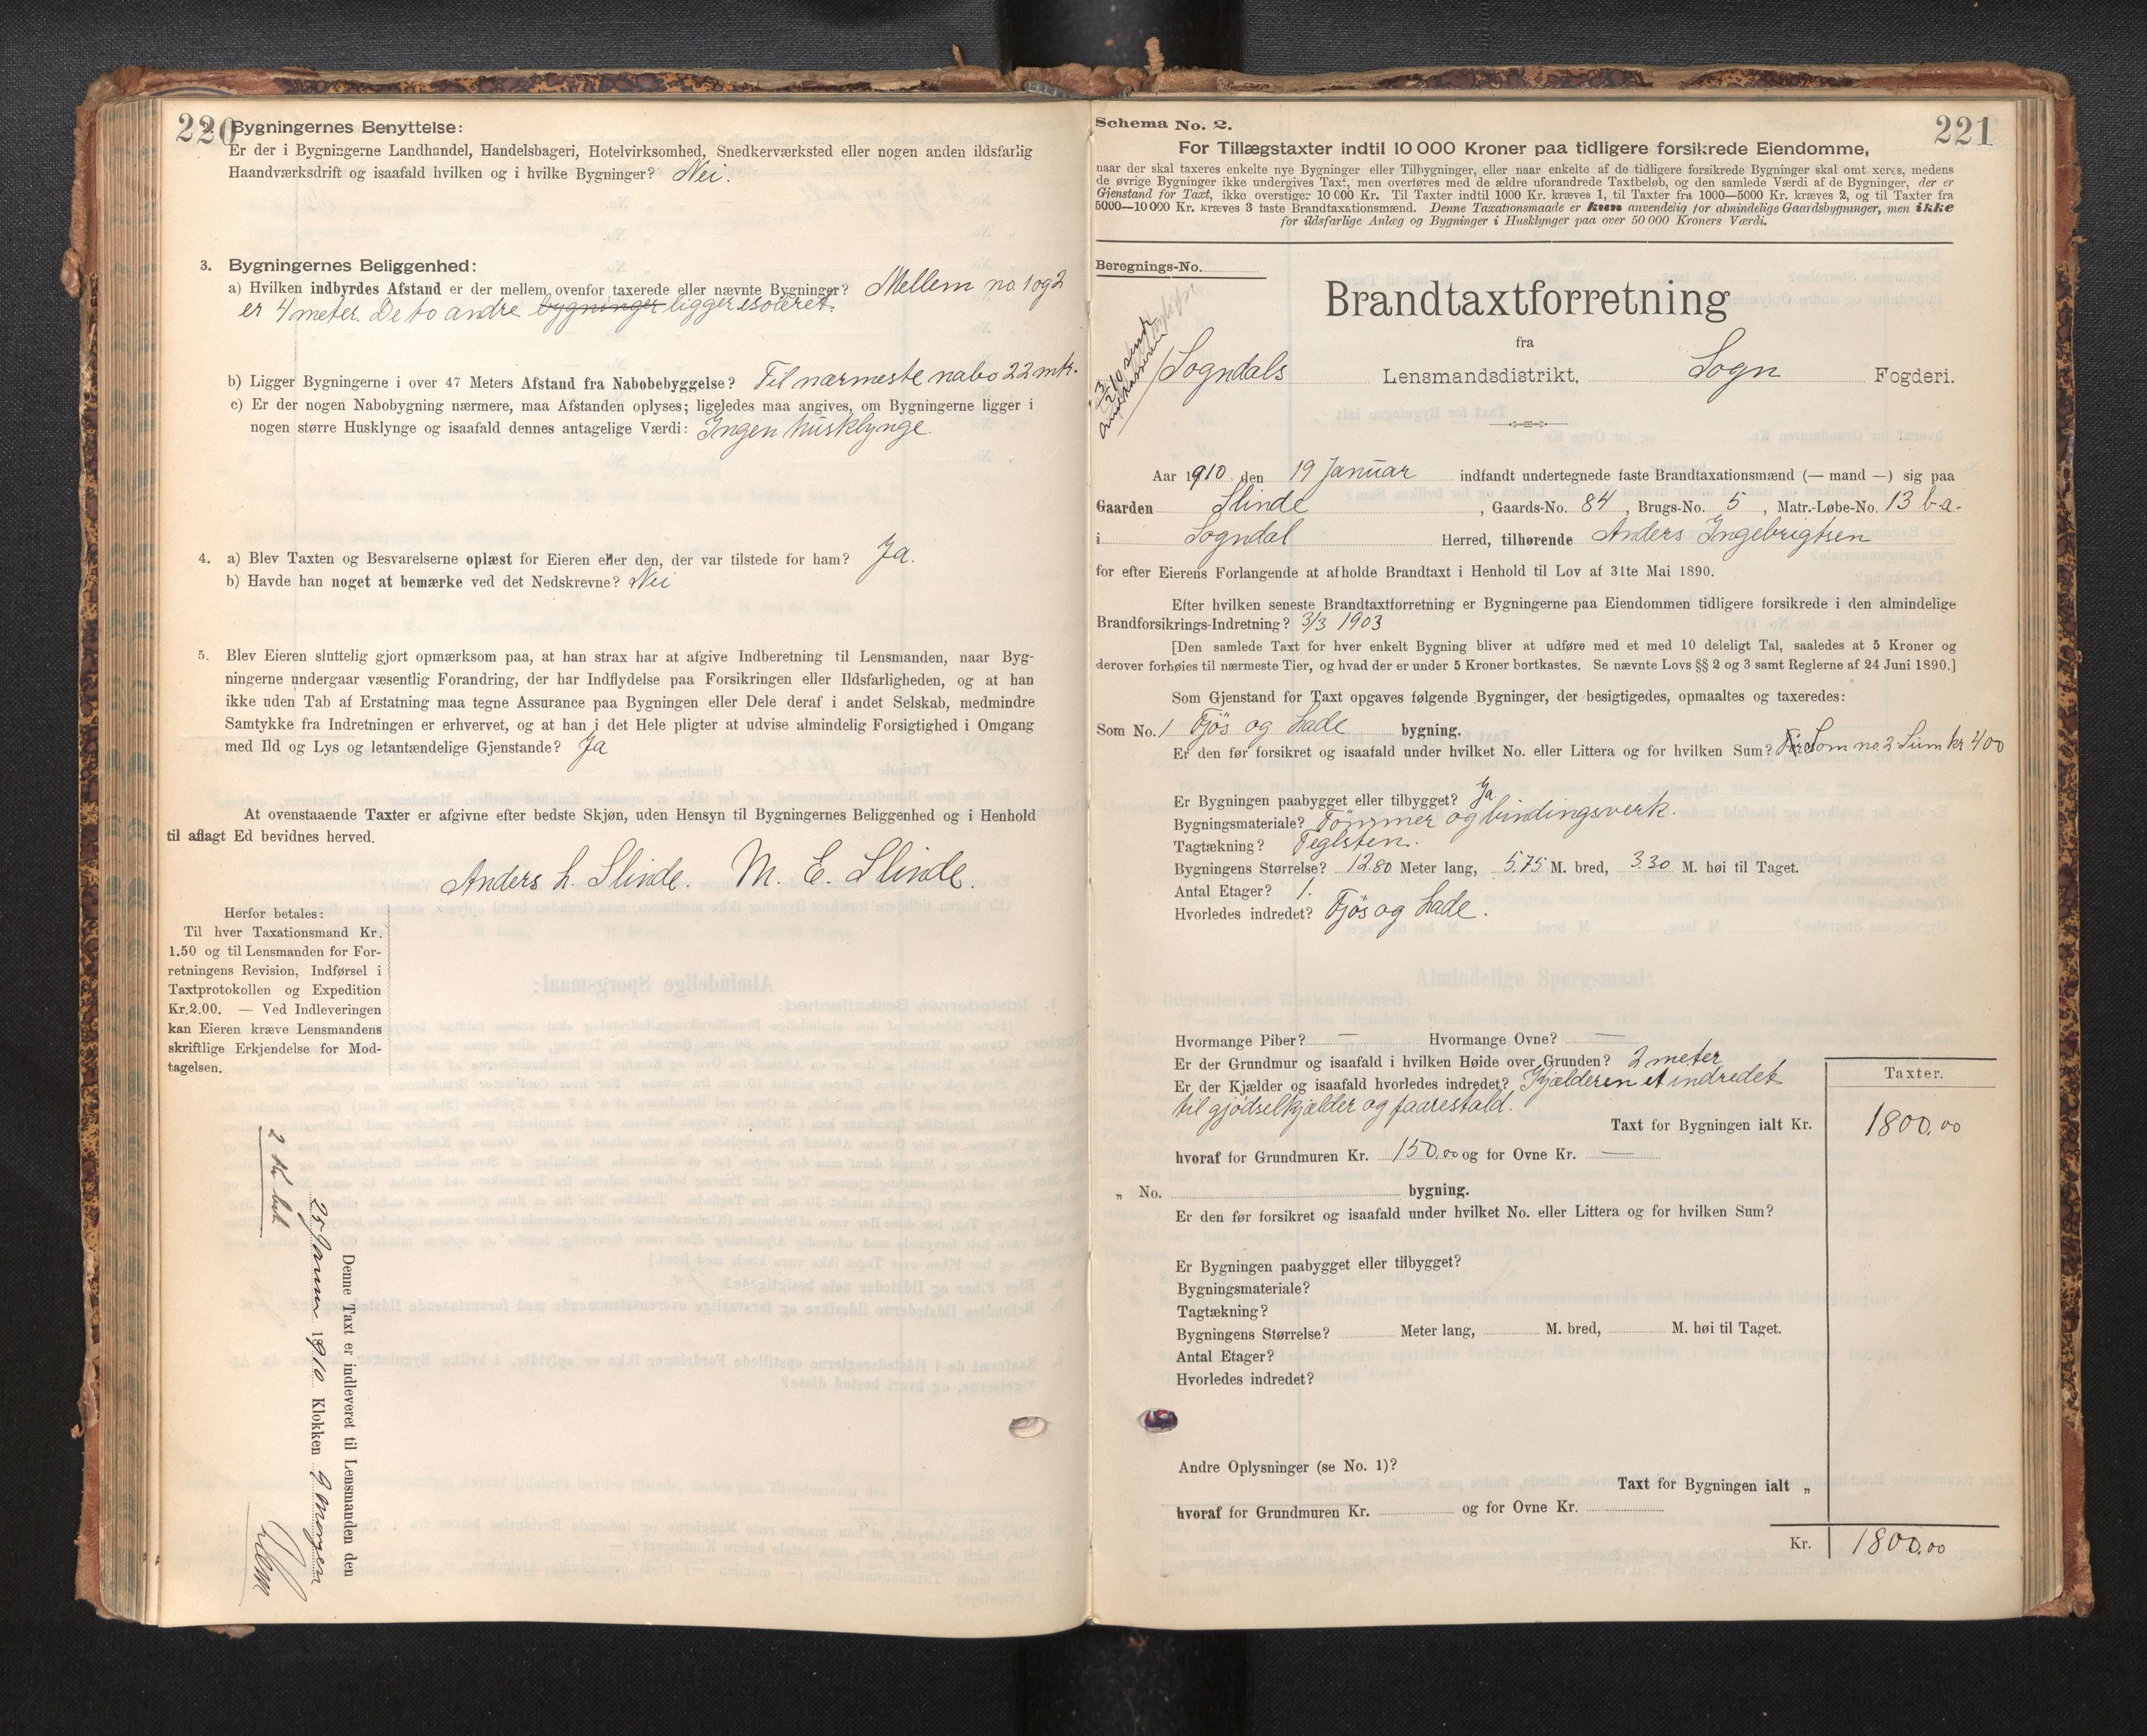 220
Bygningernes Benyttelse:
Er der i Bygningerne Landhandel, Handelsbageri, Hotelvirksomhed, Snedkerværksted eller nogen anden ildsfarlig
Haandværksdrift og isaafald hvilken og i hvilke Bygninger? Nei.
3. Bygningernes Beliggenhed:
a) Hvilken indbyrdes Afstand er der mellem ovenfor taxerede eller nævnte Bygninger? Mellem no 1 og 2
er 4 meter. De to andre bygninger ligger isoleret.
b) Ligger Bygningerne i over 47 Meters Afstand fra Nabobebyggelse? Til nærmeste nabo 22 mtr.
c) Er der nogen Nabobygning nærmere, maa Afstanden oplyses; ligeledes maa angives, om Bygningerne ligger i
nogen større Husklynge og isaafald dennes antagelige Værdi: Ingen husklynge.
4. a) Blev Taxten og Besvarelserne oplæst for Eieren eller den, der var tilstede for ham? Ja.
b) Havde han noget at bemærke ved det Nedskrevne? Nei
5. Blev Eieren sluttelig gjort opmærksom paa, at han strax har at afgive Indberetning til Lensmanden, naar Byg-
ningerne undergaar væsentlig Forandring, der har Indflydelse paa Forsikringen eller Ildsfarligheden, og at han
ikke uden Tab af Erstatning maa tegne Assurance paa Bygningen eller Dele deraf i andet Selskab, medmindre
Samtykke fra Indretningen er erhvervet, og at han i det Hele pligter at udvise almindelig Forsigtighed i Omgang
med Ild og Lys og letantændelige Gjenstande? Ja
At ovenstaaende Taxter er afgivne efter bedste Skjøn, uden Hensyn til Bygningernes Beliggenhed og i Henhold
til aflagt Ed bevidnes herved.
Anders L. Slinde. M. E. Slinde.
Herfor betales:
Til hver Taxationsmand Kr.
1.50 og til Lensmanden for For-
retningens Revision, Indførsel i
Taxtprotokollen og Expedition
Kr. 2.00. — Ved Indleveringen
kan Eieren kræve Lensmandens
skriftlige Erkjendelse for Mod-
tagelsen.
Denne Taxt er indleveret til Lensmanden den
25 Januar 1910 Klokken 9 morgen
2 Kr bet
221
Schema No. 2.
For Tillægstaxter indtil 10 000 Kroner paa tidligere forsikrede Eiendomme,
naar der skal taxeres enkelte nye Bygninger eller Tilbygninger, eller naar enkelte af de tidligere forsikrede Bygninger skal omtaxeres, medens
de øvrige Bygninger ikke undergives Taxt, men overføres med de ældre uforandrede Taxtbeløb, og den samlede Værdi af de Bygninger, der er
Gjenstand for Taxt, ikke overstiger 10 000 Kr. Til Taxter indtil 1000 Kr. kræves 1, til Taxter fra 1000—5000 Kr. kræves 2, og til Taxter fra
5000—10 000 Kr. kræves 3 faste Brandtaxationsmænd. Denne Taxationsmaade er kun anvendelig for almindelige Gaardsbygninger, men ikke
for ildsfarlige Anlæg og Bygninger i Husklynger paa over 50 000 Kroners Værdi.
Beregnings-No.
Brandtaxtforretning
fra
Sogndals Lensmandsdistrikt, Sogn Fogderi.
Aar 1910 den 19 Januar indfandt undertegnede faste Brandtaxationsmænd (— mand —) sig paa
Gaarden Slinde, Gaards-No. 84, Brugs-No. 5, Matr.-Løbe-No. 13 b-a.
i Sogndal Herred, tilhørende Anders Ingebrigtsen
for efter Eierens Forlangende at afholde Brandtaxt i Henhold til Lov af 31te Mai 1890.
Efter hvilken seneste Brandtaxtforretning er Bygningerne paa Eiendommen tidligere forsikrede i den almindelige
Brandforsikrings-Indretning? 3/3 1903
[Den samlede Taxt for hver enkelt Bygning bliver at udføre med et med 10 deleligt Tal, saaledes at 5 Kroner og
derover forhøies til nærmeste Tier, og hvad der er under 5 Kroner bortkastes. Se nævnte Lovs §§ 2 og 3 samt Reglerne af 24 Juni 1890.]
Som Gjenstand for Taxt opgaves følgende Bygninger, der besigtigedes, opmaaltes og taxeredes:
Som No. 1 Fjös og Lade bygning.
Er den før forsikret og isaafald under hvilket No. eller Littera og for hvilken Sum? Som no. 2 Sum kr 400
Er Bygningen paabygget eller tilbygget? Ja
Bygningsmateriale? Tömmer og bindingsverk.
Tagtækning? Teglsten.
Bygningens Størrelse? 12.80 Meter lang, 5.75 M. bred, 3.30 M. høi til Taget.
Antal Etager? 1.
Hvorledes indredet? Fjös og Lade.
Hvormange Piber? — Hvormange Ovne? —
Er der Grundmur og isaafald i hvilken Høide over Grunden? 2 meter
Er der Kjælder og isaafald hvorledes indredet? Kjælderen et indredet
til gjödselkjælder og faarestald.
Taxter.
Taxt for Bygningen ialt Kr. 1800,00
hvoraf for Grundmuren Kr. 150,00 og for Ovne Kr. —
„ No. bygning.
Er den før forsikret og isaafald under hvilket No. eller Littera og for hvilken Sum?
Er Bygningen paabygget eller tilbygget?
Bygningsmateriale?
Tagtækning?
Bygningens Størrelse? Meter lang, M. bred, M. høi til Taget.
Antal Etager?
Hvorledes indredet?
Andre Oplysninger (se No. 1)?
Taxt for Bygningen ialt „
hvoraf for Grundmuren Kr. og for Ovne Kr.
Kr. 1800,00